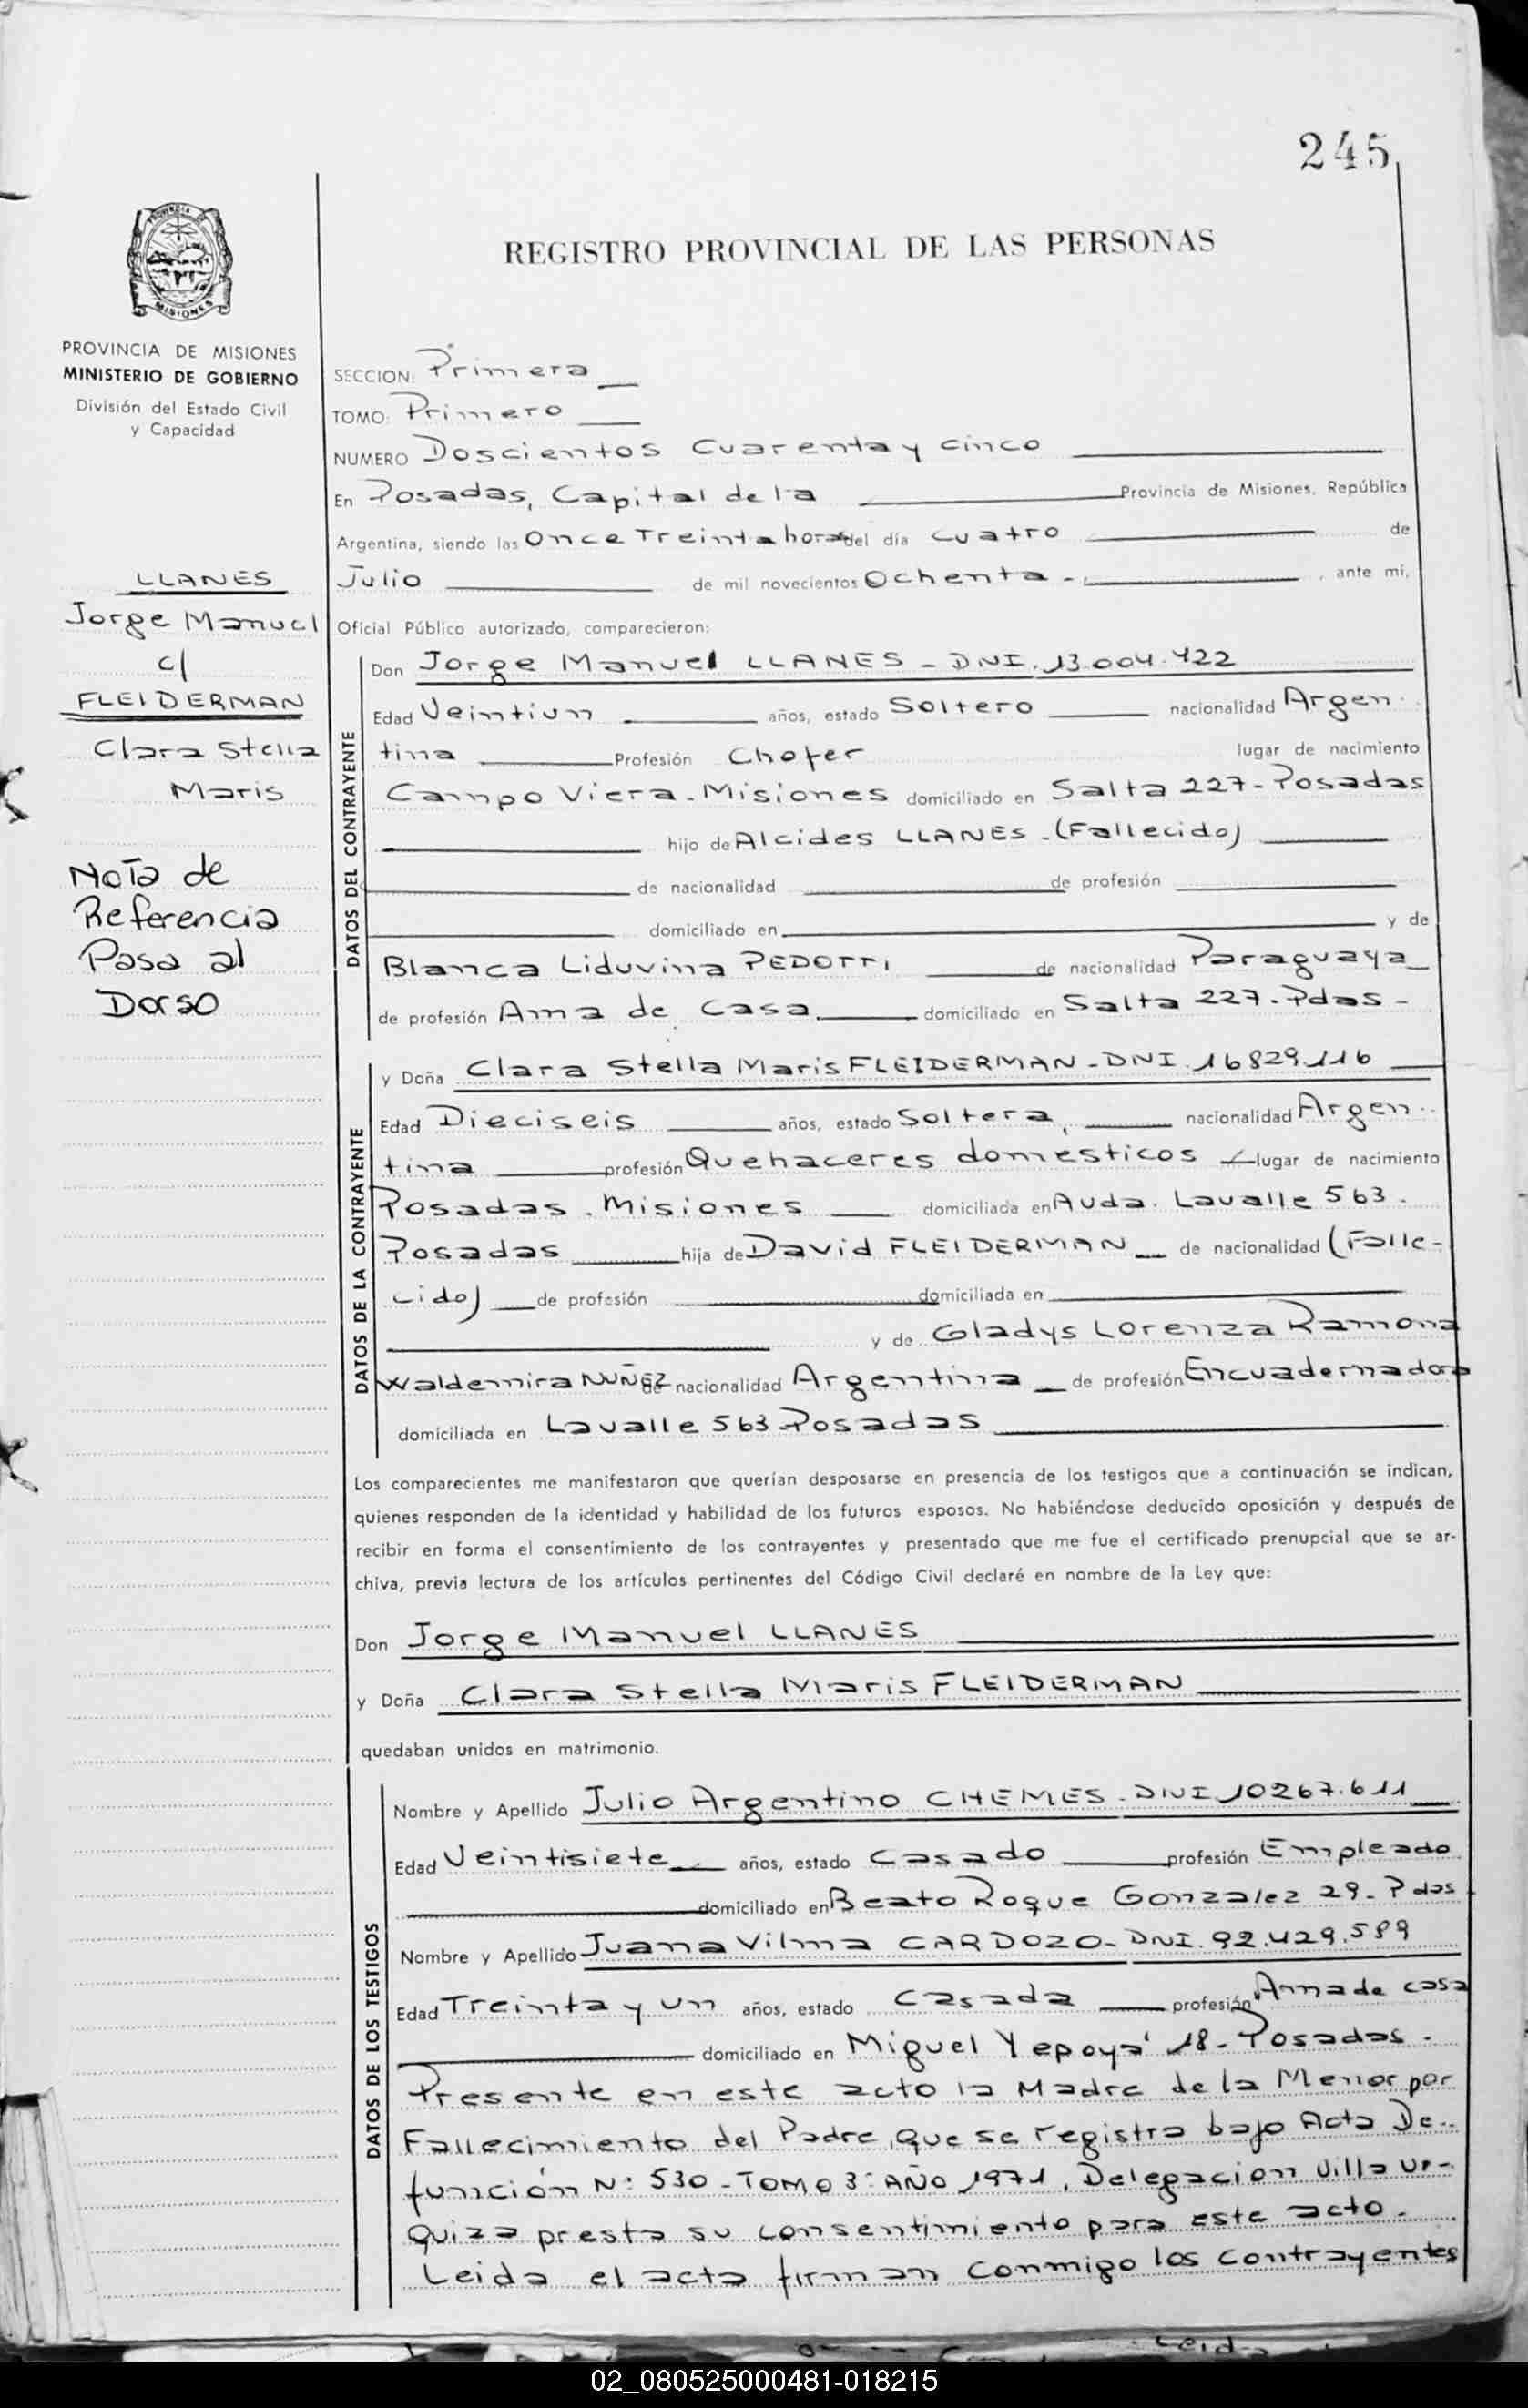 245
REGISTRO PROVINCIAL DE LAS PERSONAS
PROVINCIA DE
MISIONES
PROVINCIA DE MISIONES
MINISTERIO DE GOBIERNO
División del Estado Civil
y Capacidad
LLANES
Jorge Manuel
c/
FLEIDERMAN
Clara Stella
Maris
Nota de
Referencia
Pasa al
Dorso
SECCION: Primera
TOMO: Primero
NUMERO Doscientos Cuarenta y cinco
En Posadas, Capital de la Provincia de Misiones, República
Argentina, siendo las Once Treinta horas del día Cuatro de
Julio de mil novecientos Ochenta.-, ante mi,
Oficial Público autorizado, comparecieron:
DATOS DEL CONTRAYENTE
Don Jorge Manuel LLANES - DNI. 13.004.422
Edad Veintiun años, estado Soltero nacionalidad Argen-
tina Profesión Chofer lugar de nacimiento
Campo Viera - Misiones domiciliado en Salta 227 - Posadas
hijo de Alcides LLANES - (Fallecido)
de nacionalidad de profesión
domiciliado en y de
Blanca Liduvina PEDOTTI de nacionalidad Paraguaya
de profesión Ama de Casa domiciliado en Salta 227 - Pdas -
DATOS DE LA CONTRAYENTE
y Doña Clara Stella Maris FLEIDERMAN - DNI. 16829.116
Edad Dieciseis años, estado Soltera, nacionalidad Argen-
tina profesión Quehaceres domesticos lugar de nacimiento
Posadas . Misiones domiciliada en Avda. Lavalle 563 -
Posadas hija de David FLEIDERMAN de nacionalidad (Falle-
cido) de profesión domiciliada en
y de Gladys Lorenza Ramona
Waldemira NUÑEZ de nacionalidad Argentina de profesión Encuadernadora
domiciliada en Lavalle 563 - Posadas
Los comparecientes me manifestaron que querían desposarse en presencia de los testigos que a continuación se indican,
quienes responden de la identidad y habilidad de los futuros esposos. No habiéndose deducido oposición y después de
recibir en forma el consentimiento de los contrayentes y presentado que me fue el certificado prenupcial que se ar-
chiva, previa lectura de los artículos pertinentes del Código Civil declaré en nombre de la Ley que:
Don Jorge Manuel LLANES
y Doña Clara Stella Maris FLEIDERMAN
quedaban unidos en matrimonio.
DATOS DE LOS TESTIGOS
Nombre y Apellido Julio Argentino CHEMES - DNI 10267.611
Edad Veintisiete años, estado Casado profesión Empleado
domiciliado en Beato Roque Gonzalez 29 - Pdas
Nombre y Apellido Juana Vilma CARDOZO - DNI. 92.429.589
Edad Treinta y un años, estado Casada profesión Ama de casa
domiciliado en Miguel Yepoya' 18 - Posadas -
Presente en este acto la Madre de la Menor por
Fallecimiento del Padre, que se registra bajo Acta De-
función N: 530 - TOMO 3: AÑO 1971, Delegación Villa Ur-
quiza presta su consentimiento para este acto.
Leida el acta firman conmigo los contrayentes
02_080525000481-018215